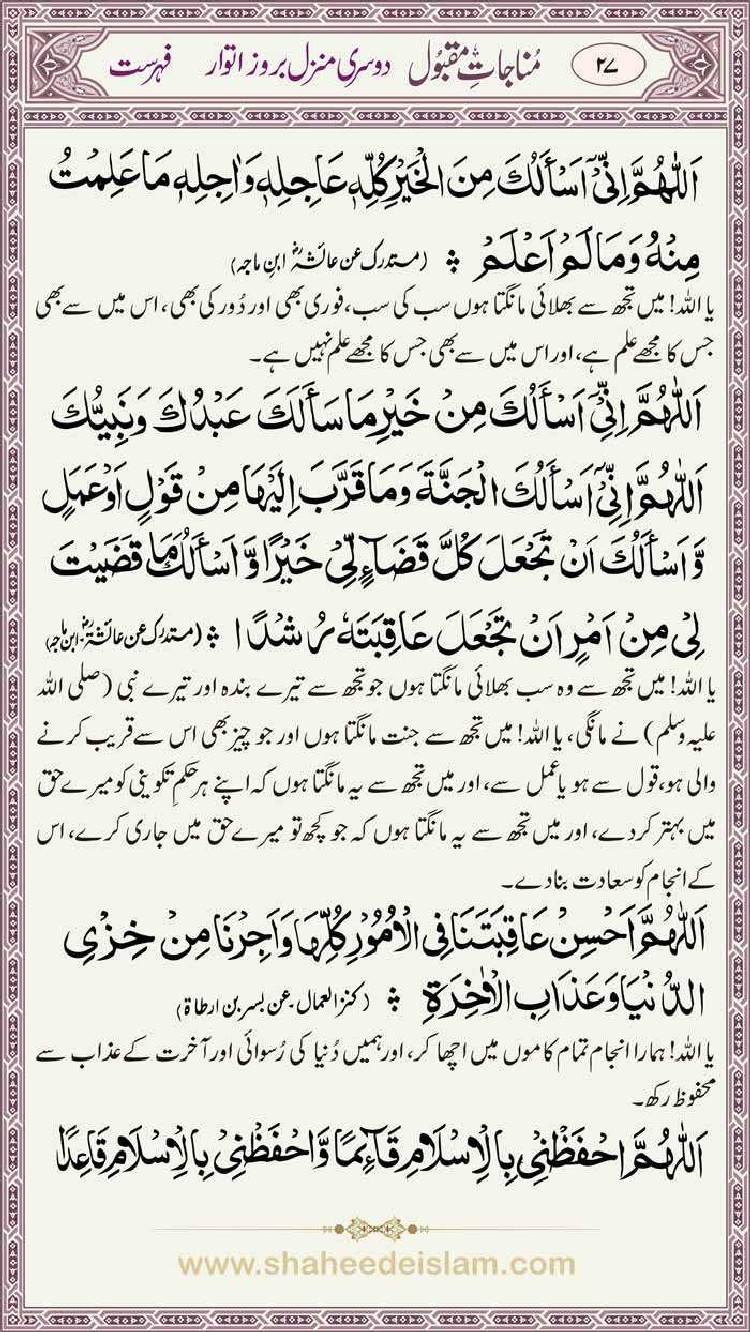 ۲۷ مُناجاتِ مقبُول دوسری منزل بروز اتوار فہرست
اَللّٰهُمَّ اِنِّیْٓ اَسْأَلُكَ مِنَ الْخَیْرِ کُلِّهٖ عَاجِلِهٖ وَاٰجِلِهٖ مَا عَلِمْتُ
مِنْهُ وَمَا لَمْ اَعْلَمْ (مستدرک عن عائشہؓ ابنِ ماجہ)
یا اللہ! میں تجھ سے بھلائی مانگتا ہوں سب کی سب، فوری بھی اور دُور کی بھی، اس میں سے بھی
جس کا مجھے علم ہے، اور اس میں سے بھی جس کا مجھے علم نہیں ہے۔
اَللّٰهُمَّ اِنِّیْٓ اَسْأَلُكَ مِنْ خَیْرِ مَا سَأَلَكَ عَبْدُكَ وَنَبِیُّكَ
اَللّٰهُمَّ اِنِّیْٓ اَسْأَلُكَ الْجَنَّةَ وَمَا قَرَّبَ اِلَیْهَا مِنْ قَوْلٍ اَوْ عَمَلٍ
وَّاَسْأَلُكَ اَنْ تَجْعَلَ کُلَّ قَضَآءٍ لِّیْ خَیْرًا وَّ اَسْأَلُكَ مَا قَضَیْتَ
لِیْ مِنْ اَمْرٍ اَنْ تَجْعَلَ عَاقِبَتَهٗ رُشْدًا (مستدرک عن عائشہؓ، ابن ماجہ)
یا اللہ! میں تجھ سے وہ سب بھلائی مانگتا ہوں جو تجھ سے تیرے بندہ اور تیرے نبی (صلی اللہ
علیہ وسلم) نے مانگی، یا اللہ! میں تجھ سے جنت مانگتا ہوں اور جو چیز بھی اس سے قریب کرنے
والی ہو، قول سے ہو یا عمل سے، اور میں تجھ سے یہ مانگتا ہوں کہ اپنے ہر حکمِ تکوینی کو میرے حق
میں بہتر کردے، اور میں تجھ سے یہ مانگتا ہوں کہ جو کچھ تو میرے حق میں جاری کرے، اس
کے انجام کو سعادت بنادے۔
اَللّٰهُمَّ اَحْسِنْ عَاقِبَتَنَا فِی الْاُمُوْرِ کُلِّهَا وَاَجِرْنَا مِنْ خِزْیِ
الدُّنْیَا وَعَذَابِ الْاٰخِرَةِ (کنز العمال۔ عن بسر بن ارطاۃ)
یا اللہ! ہمارا انجام تمام کاموں میں اچھا کر، اور ہمیں دُنیا کی رُسوائی اور آخرت کے عذاب سے
محفوظ رکھ۔
اَللّٰهُمَّ احْفَظْنِیْ بِالْاِسْلَامِ قَآئِمًا وَّاحْفَظْنِیْ بِالْاِسْلَامِ قَاعِدًا
www.shaheedeislam.com